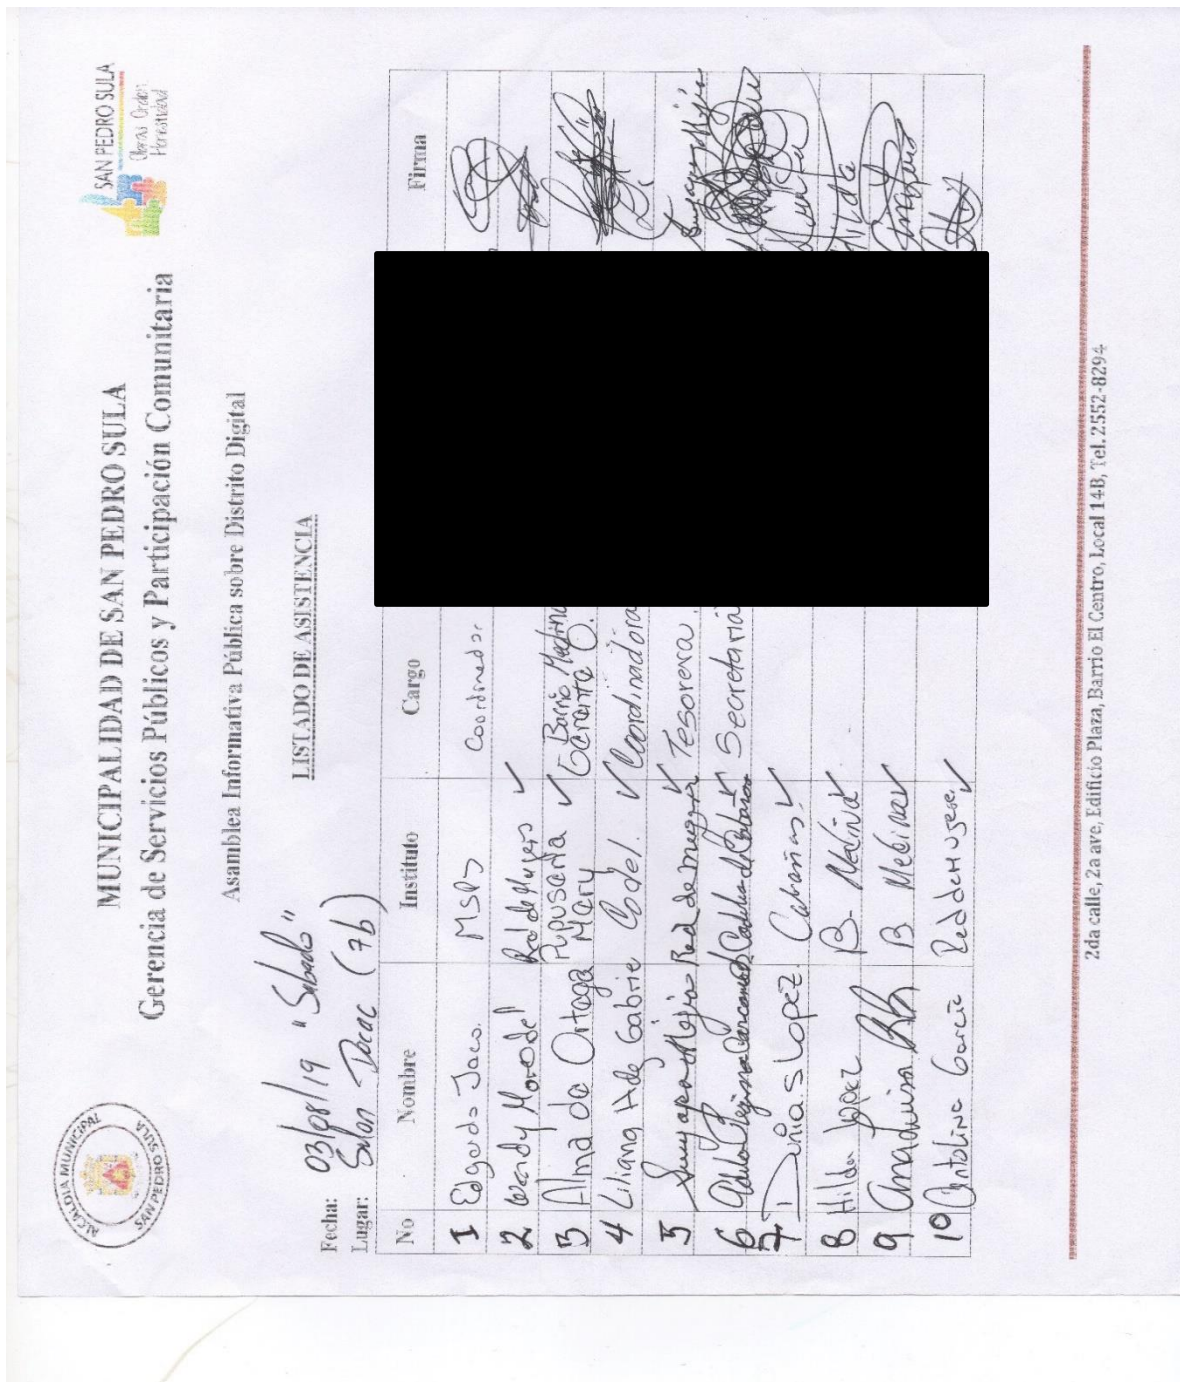 ALCALDIA MUNICIPAL
SAN PEDRO SULA
MUNICIPALIDAD DE SAN PEDRO SULA
Gerencia de Servicios Públicos y Participación Comunitaria
SAN PEDRO SULA
Obras Orden
Honestidad
Asamblea Informativa Pública sobre Distrito Digital
LISTADO DE ASISTENCIA
Fecha: 03/08/19 "Sabado"
Lugar: Salon (7b)
No Nombre Instituto Cargo Firma
1 Edgardo Jaco. MSPS Coordinador
2 Wendy Red de Mujeres ✓
3 Alma de Ortega Pupuseria Mary ✓ Barrio Medina Gerente
4 Liliana H de Gabrie Codel. ✓ Coordinadora
5 Suyapa Mejia Red de mujeres ✓ Tesorera. Suyapa Mejia
6 Regina de Cabañas ✓ Secretaria
7 Denia S Lopez Cabañas ✓
8 Hilda Lopez B. Medina ✓ Hilda
9 Ana Luisa B. Medina ✓
10 Garcia Red de Mujeres ✓
2da calle, 2a ave, Edificio Plaza, Barrio El Centro, Local 14B, Tel. 2552-8294